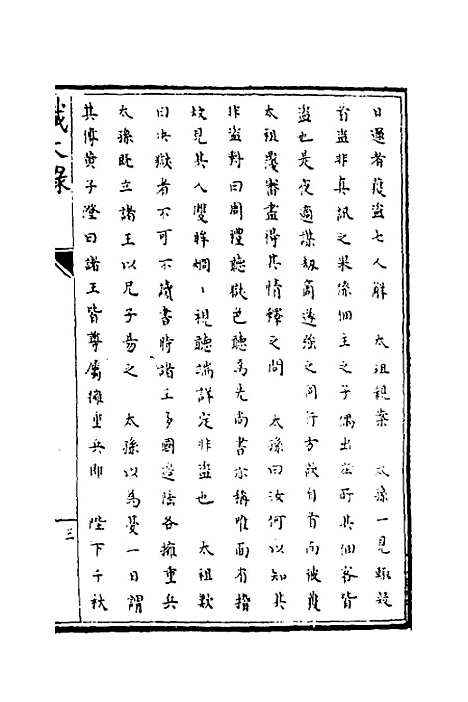 日邏者獲盜七人解　太祖親案　太孫一見輒疑
首盜非眞訊之果係佃主之子偶出在所其佃客皆
盜也是夜適謀劫商遂強之同行方欲自首而被獲
太祖覆審盡得其情釋之問　太孫曰汝何以知其
非盜對曰周禮聽獄色聽爲先尚書亦稱惟面有稽
故見其人雙眸炯ヽ視聽端詳定非盜也　太祖歎
曰決獄者不可不讀書時諸王多國邊陲各擁重兵
太孫既立諸王以兄子易之　太孫以爲憂一日謂
其傅黃子澄曰諸王皆尊屬擁重兵即　陛下千秋
錄
三